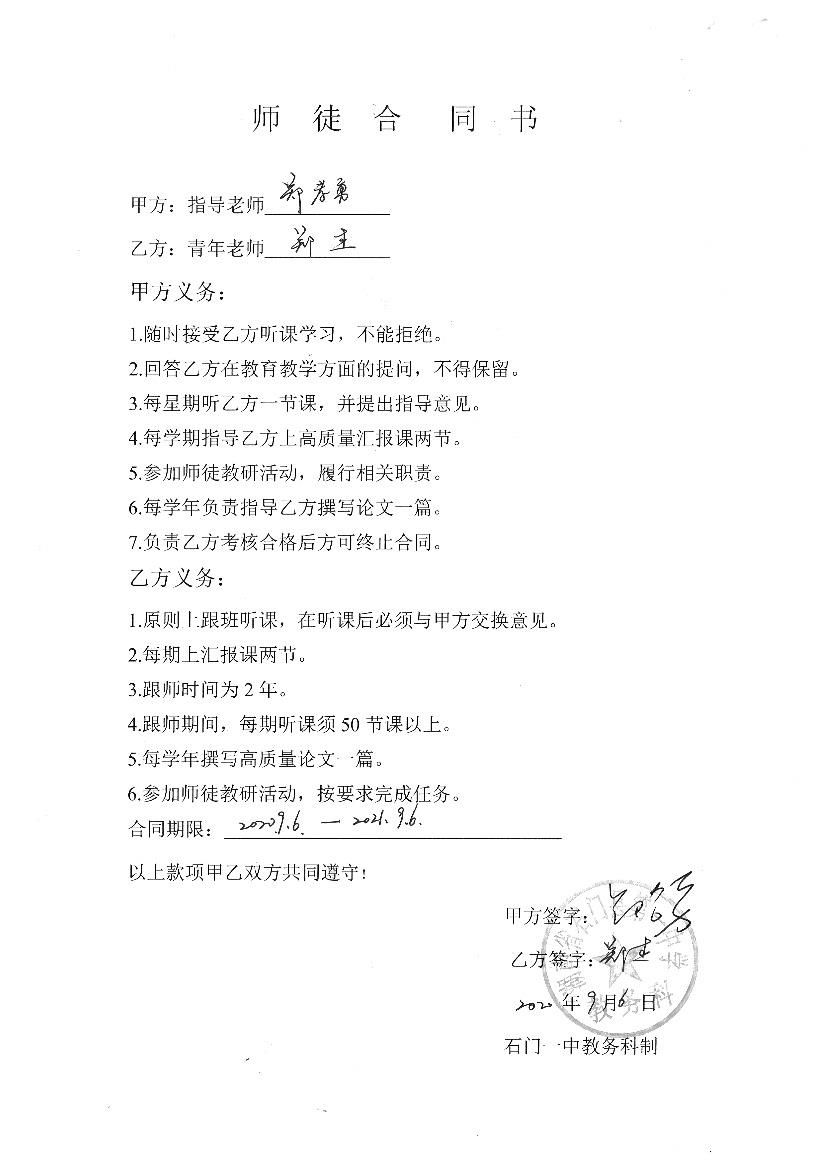 师徒合同书
甲方：指导老师 郑孝勇
乙方：青年老师 郑主
甲方义务：
1.随时接受乙方听课学习，不能拒绝。
2.回答乙方在教育教学方面的提问，不得保留。
3.每星期听乙方一节课，并提出指导意见。
4.每学期指导乙方上高质量汇报课两节。
5.参加师徒教研活动，履行相关职责。
6.每学年负责指导乙方撰写论文一篇。
7.负责乙方考核合格后方可终止合同。
乙方义务：
1.原则上跟班听课，在听课后必须与甲方交换意见。
2.每期上汇报课两节。
3.跟师时间为2年。
4.跟师期间，每期听课须50节课以上。
5.每学年撰写高质量论文一篇。
6.参加师徒教研活动，按要求完成任务。
合同期限：2020.9.6.—2021.9.6.
以上款项甲乙双方共同遵守！
甲方签字：
乙方签字：郑主
2020年9月6日
教务科
石门一中教务科制